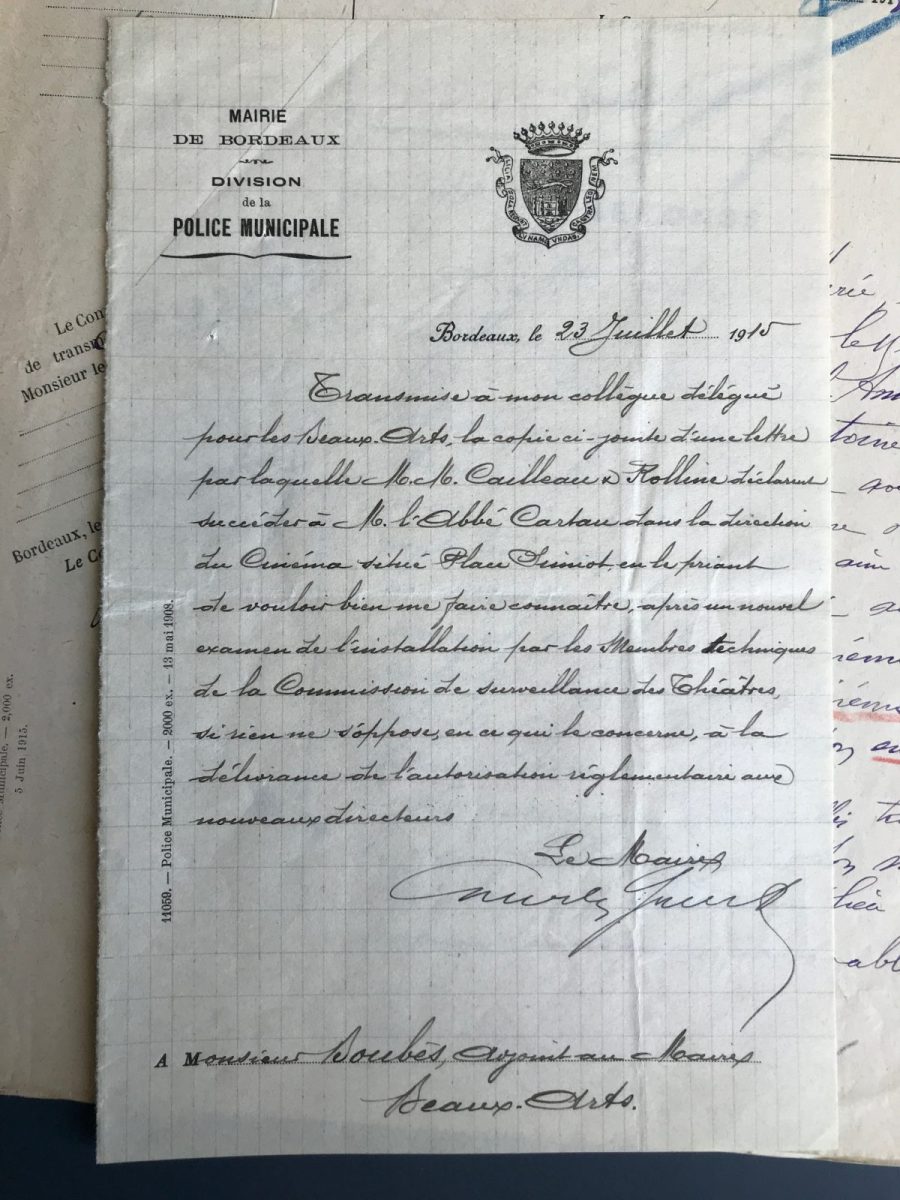 MAIRIE
DE BORDEAUX
DIVISION
de la
POLICE MUNICIPALE
Bordeaux, le 23 Juillet 1915
Transmise à mon collègue délégué
pour les Beaux-Arts, la copie ci-jointe d'une lettre
par laquelle M.M. Cailleau & Rolline déclarent
succéder à M. l'Abbé Cartau dans la direction
du Cinéma situé Place Simiot, en le priant
de vouloir bien me faire connaître, après un nouvel
examen de l'installation par les Membres techniques
de la Commission de surveillance des Théâtres,
si rien ne s'oppose, en ce qui le concerne, à la
délivrance de l'autorisation réglementaire aux
nouveaux directeurs
Le Maire
A Monsieur Boubès, adjoint au Maire
Beaux-Arts.
11059. — Police Municipale. — 2000 ex. — 13 mai 1908.
Le Con
de trans
Monsieur le
Bordeaux, le
Le Co
Municipale. — 2,000 ex.
5 Juin 1915.